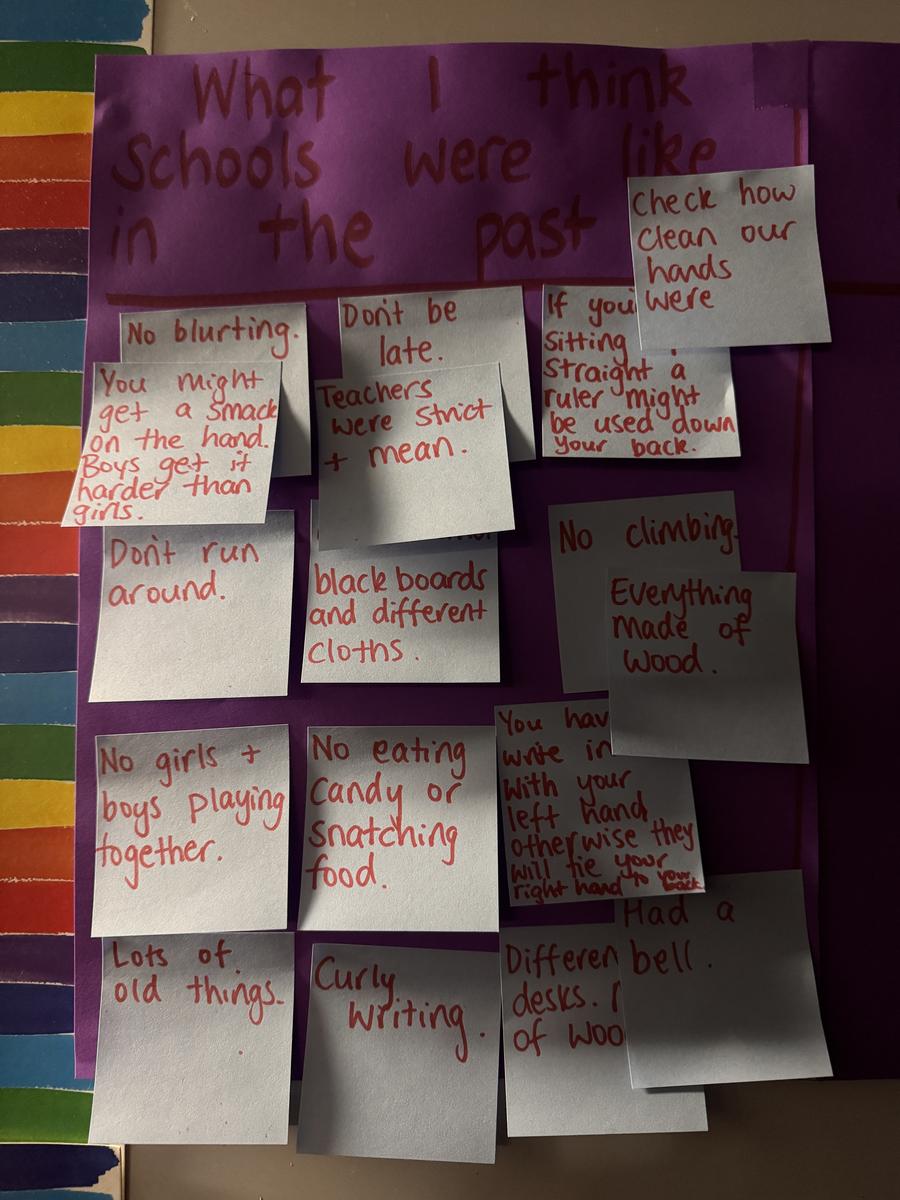 What I think
Schools were like
in the past
Check how
clean our
hands
were
No blurting.
Don't be
late.
If you
Sitting
Straight a
ruler might
be used down
your back.
You might
get a smack
on the hand.
Boys get it
harder than
girls.
Teachers
were strict
+ mean.
Don't run
around.
black boards
and different
cloths.
No climbing.
Everything
made of
wood.
No girls +
boys playing
together.
No eating
candy or
snatching
food.
You hav
write in
with your
left hand
otherwise they
will tie your
right hand to your back
Lots of
old things.
Curly
writing.
Differen
desks.
of woo
Had a
bell.